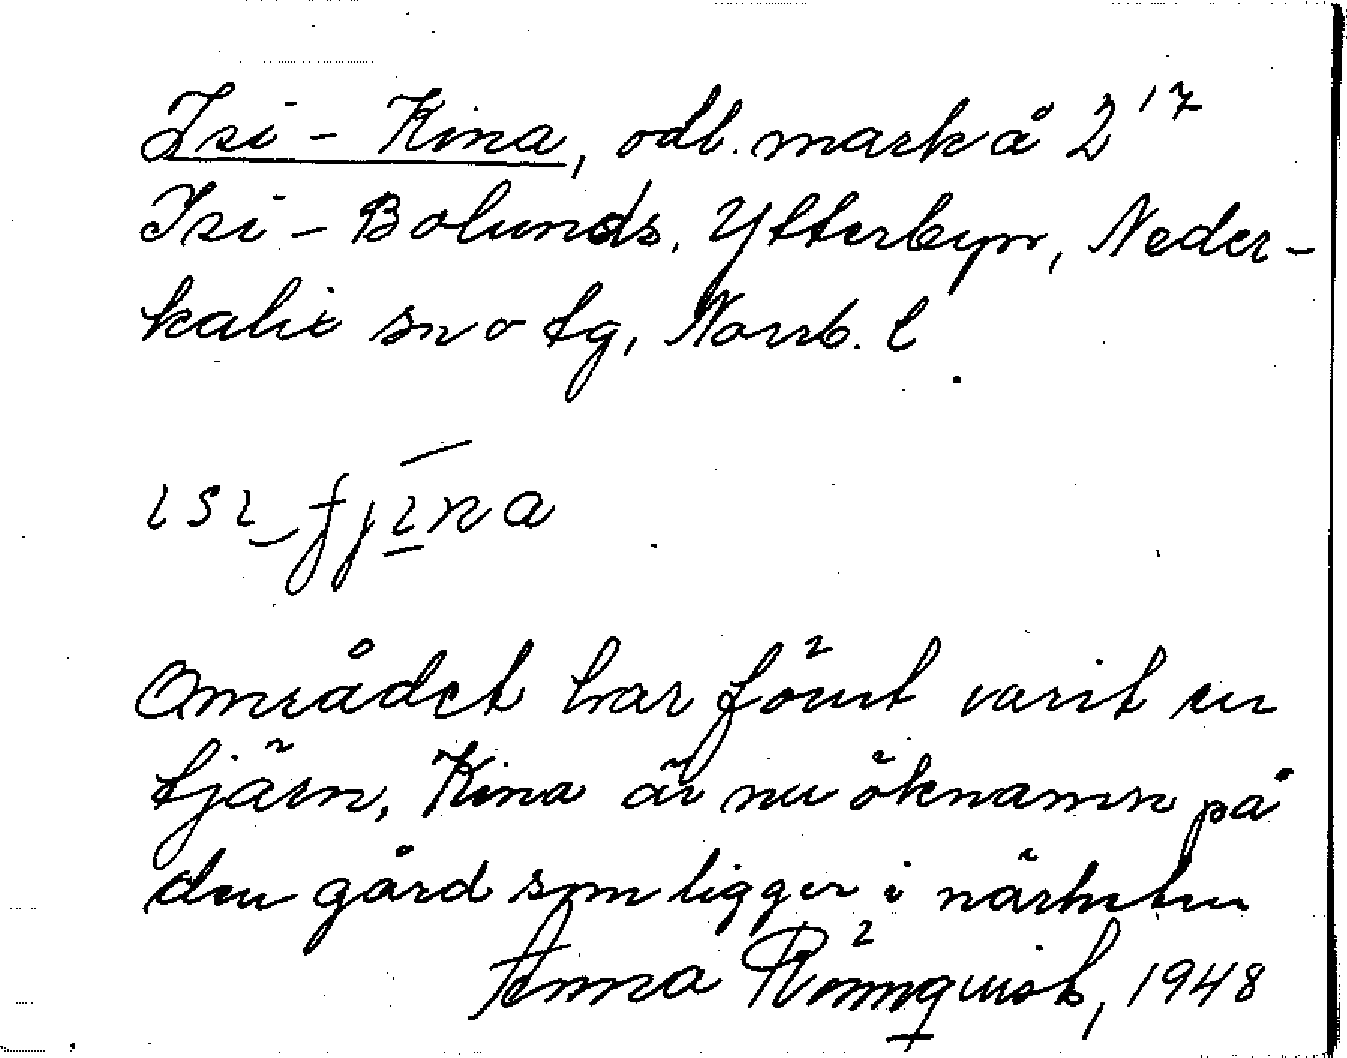 Isi - Kina, odl. mark å 2¹⁷
Isi - Bolunds, Ytterbyn, Neder-
kalix sn o tg, Norrb. l
ısı fjına
Området har förut varit en
tjärn, Kina är nu öknamn på
den gård som ligger i närheten
Anna Rönnquist, 1948